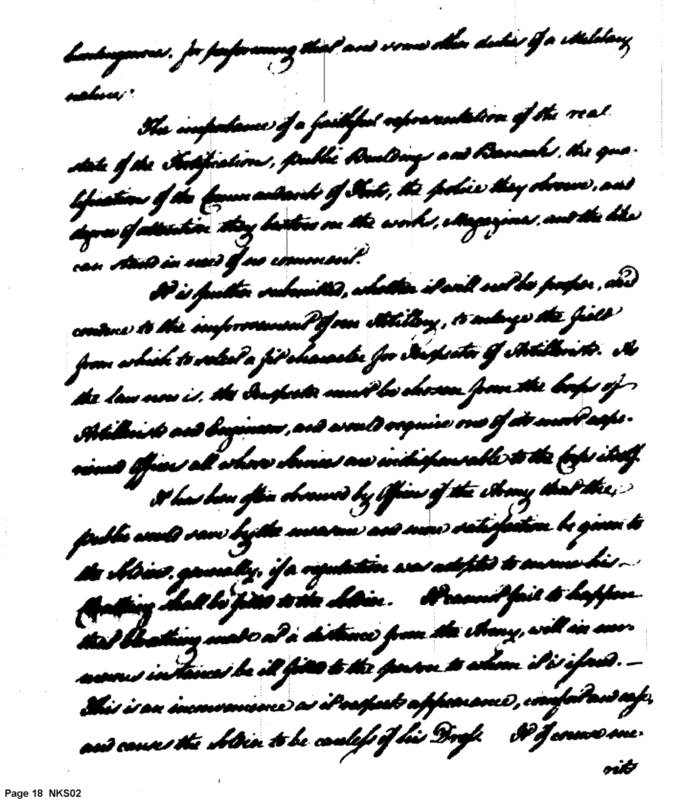 for performing that and some other duties of a Military
nature;
The importance of a faithful representation of the real
state of the Fortification, public Buildings and Barracks, the qua-
lifications of the Commandants of Forts, the police they observe, and
degree of attention they bestow on the works, Magazines, and the like
can stand in need of no comment.
It is further submitted, whether it will not be proper, and
conduce to the improvement of our Artillery, to enlarge the field
from which to select a fit character for Inspector of Artillerists. As
the law now is, the Inspector must be chosen from the Corps of
Artillerists and Engineers, and would require one of its most expe-
rienced Officers all whose Services are indispensable to the Corps itself.
It has been often observed by Officers of the Army that the
public would save by the measure and more satisfaction be given to
the Soldiers, generally, if a regulation was adopted to ensure his
Cloathing shall be fitted to the Soldier. It cannot fail to happen
that Cloathing made at a distance from the Army, will in nu-
merous instances be ill fitted to the person to whom it is issued. —
This is an inconvenience as it respects appearance, comfort and ease,
and causes the Soldier to be careless of his Dress. It of course me-
rits
Page 18 NKS02